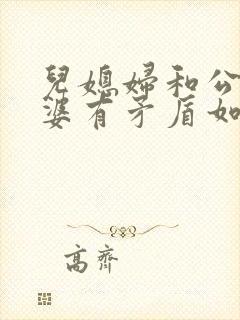 兒媳婦和公
婆有矛盾如
高齊